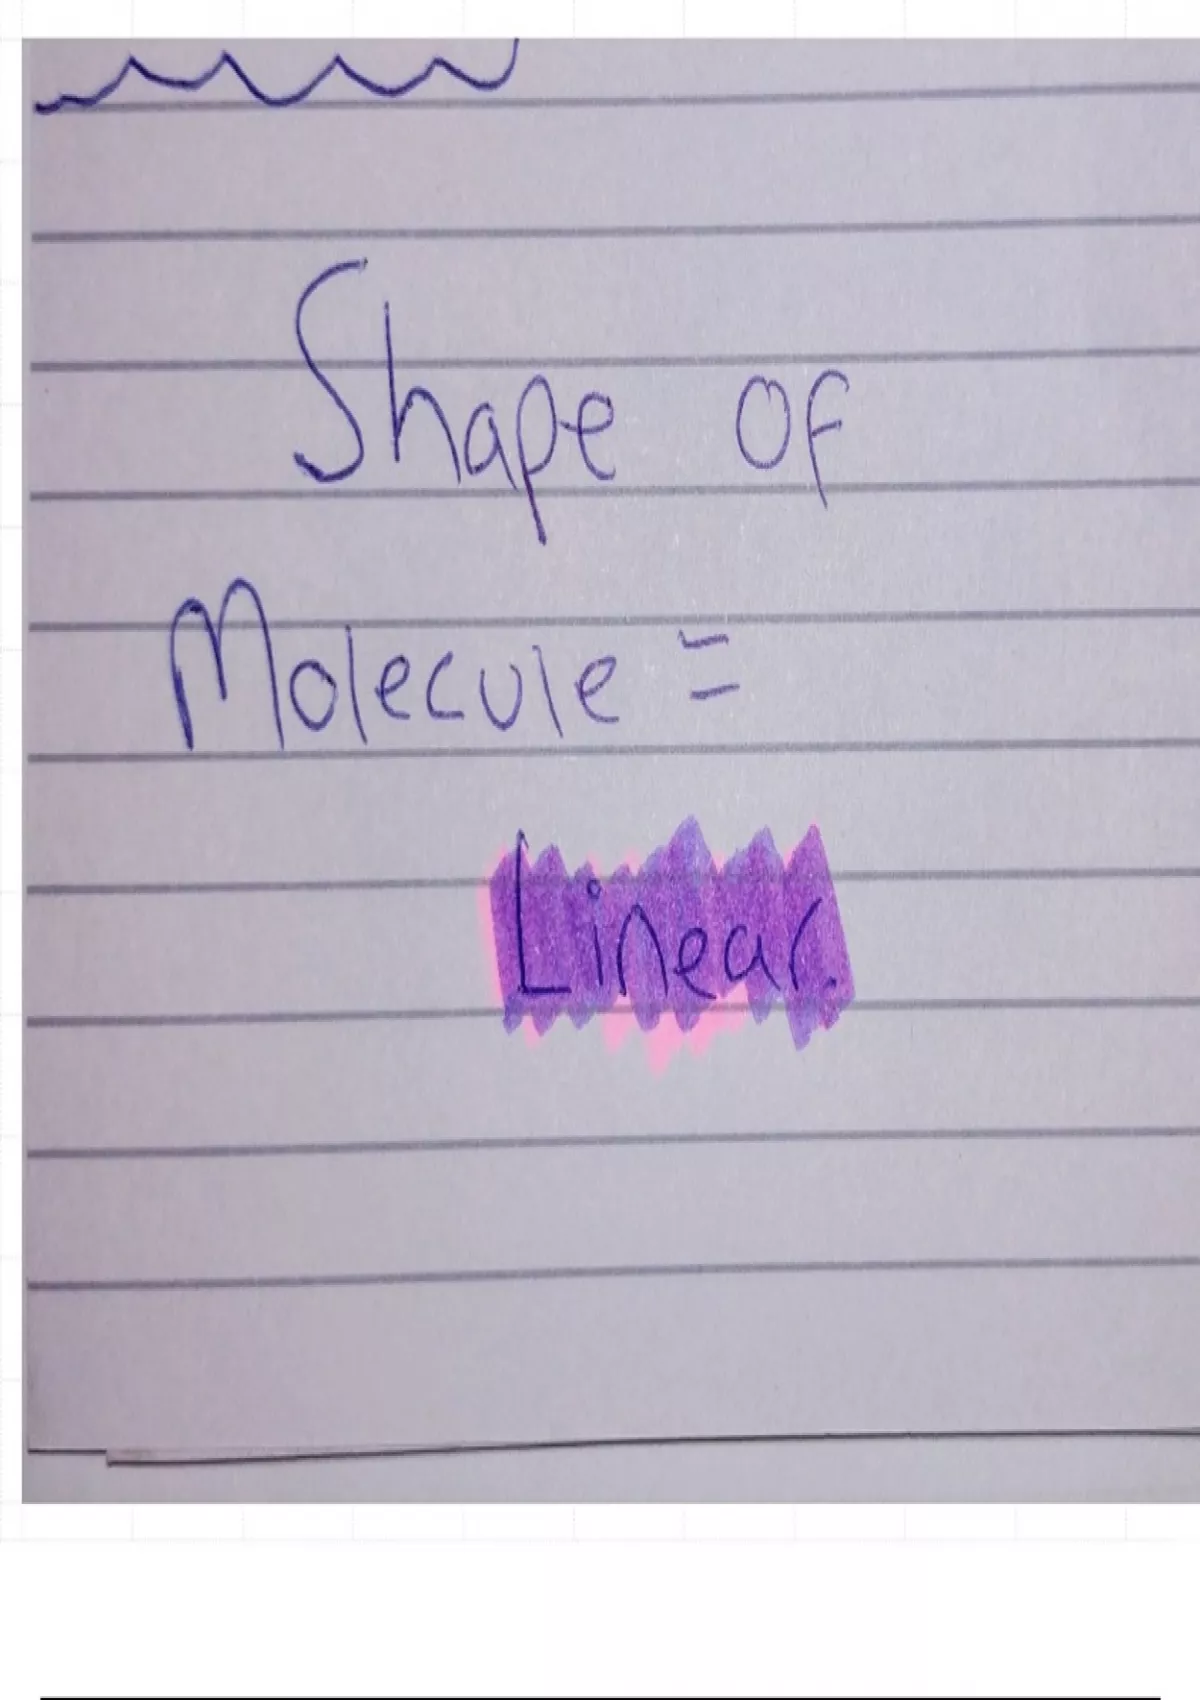 Shape of
Molecule =
Linear.